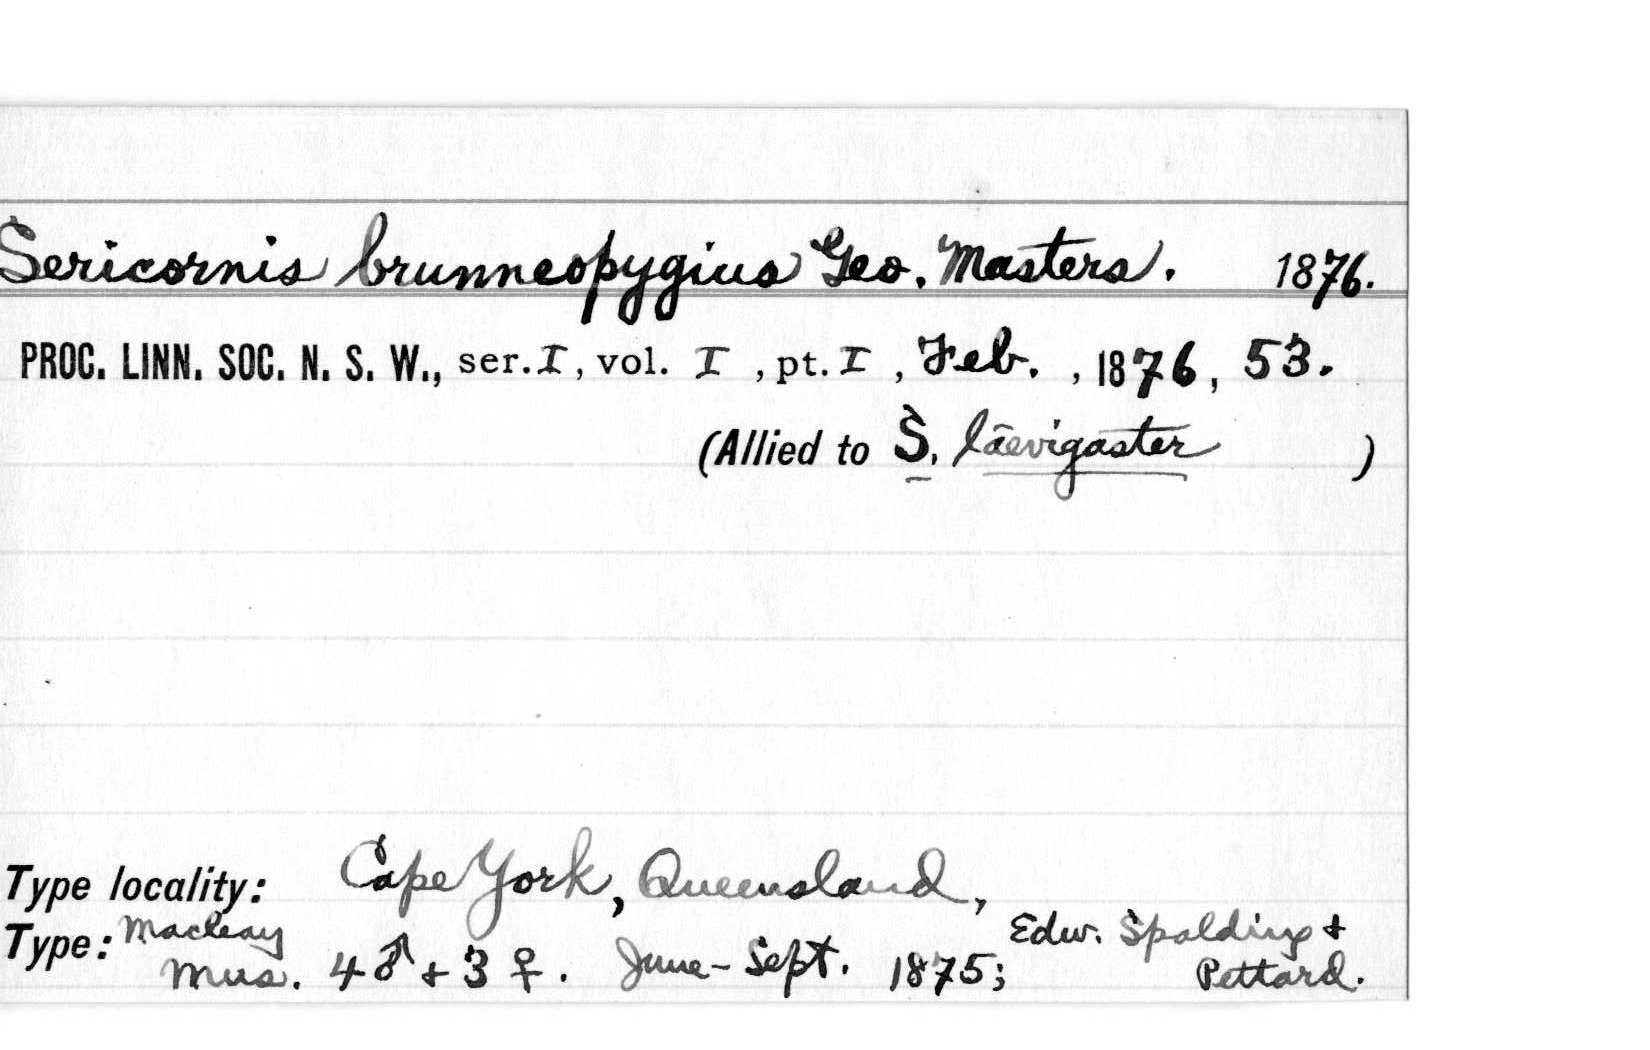 Sericornis brunneopygius Geo. Masters. 1876.
PROC. LINN. SOC. N. S. W., ser. I, vol. I, pt. I, Feb., 1876, 53.
(Allied to S. lāevigāster)
Type locality: Cape York, Queensland,
Type: Macleay Mus. 4♂ + 3♀. June-Sept. 1875; Edw. Spalding + Pettard.